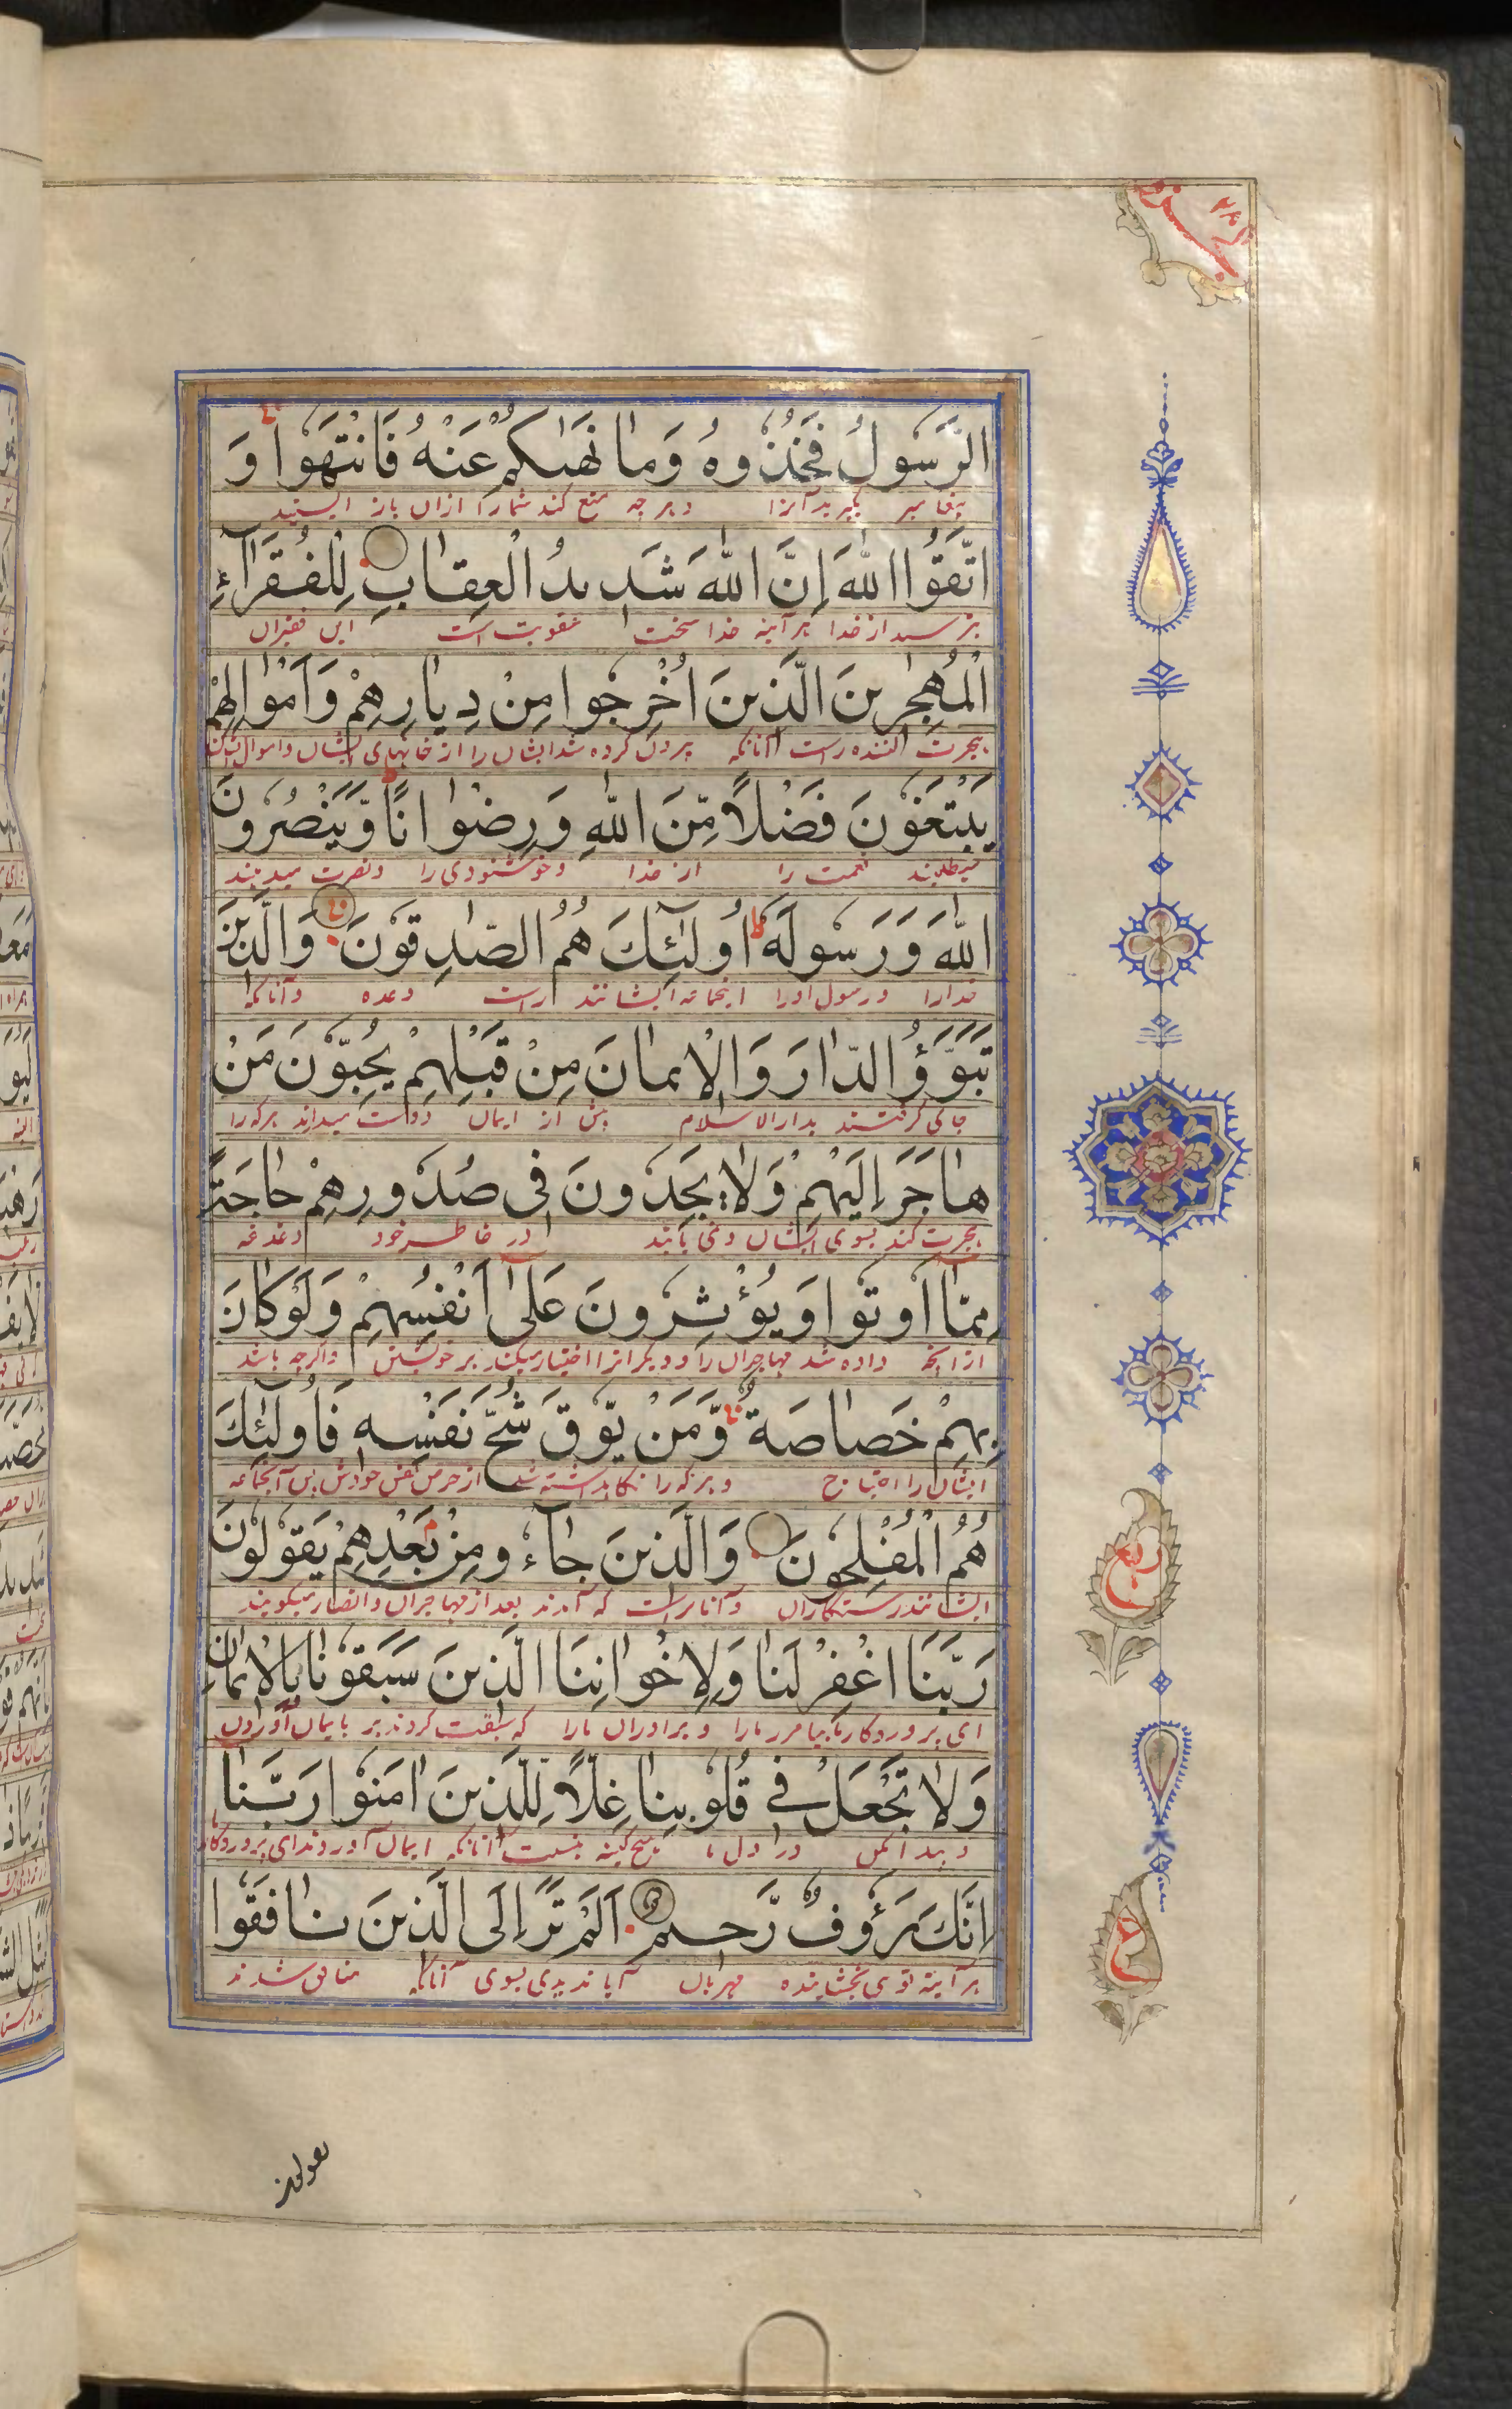 جزو ۲۸
الرَّسُولُ فَخُذُوهُ وَمَا نَهٰىكُمْ عَنْهُ فَانْتَهُوا وَ
پیغامبر بگیرید آنرا و هرچه منع کند شما را ازان باز ایستید
اتَّقُوا اللّٰهَ اِنَّ اللّٰهَ شَدِيدُ الْعِقَابِ لِلْفُقَرَآءِ
بترسید از خدا هر آینه خدا سخت عقوبت است این فقیران
الْمُهٰجِرِينَ الَّذِينَ اُخْرِجُوا مِنْ دِيَارِهِمْ وَاَمْوَالِهِمْ
هجرت کننده راست آنانکه بیرون کرده شد ایشان را از خانهای ایشان و اموال
يَبْتَغُونَ فَضْلًا مِّنَ اللّٰهِ وَرِضْوَانًا وَّيَنْصُرُونَ
میطلبند نعمت را از خدا و خوشنودی را و نصرت میدهند
اللّٰهَ وَرَسُولَهٗ اُولٰٓئِكَ هُمُ الصّٰدِقُونَ وَالَّذِينَ
خدا را و رسول اورا اینجماعه ایشانند راست وعده و آنانکه
تَبَوَّؤُ الدَّارَ وَالْاِيمَانَ مِنْ قَبْلِهِمْ يُحِبُّونَ مَنْ
جای گرفتند بدار الاسلام پیش از ایمان دوست میدارند هرکه را
هَاجَرَ اِلَيْهِمْ وَلَا يَجِدُونَ فِي صُدُورِهِمْ حَاجَةً
هجرت کند بسوی ایشان و نمی یابند در خاطر خود دغدغه
مِمَّا اُوتُوا وَيُؤْثِرُونَ عَلٰٓى اَنْفُسِهِمْ وَلَوْ كَانَ
از آنچه داده شد مهاجران را و دیگرانرا اختیار میکنند بر خویشتن و اگرچه باشد
بِهِمْ خَصَاصَةٌ وَّمَنْ يُّوقَ شُحَّ نَفْسِهٖ فَاُولٰٓئِكَ
ایشان را احتیاج و هرکه را نگاهداشته شد از حرص نفس خودش پس آنجماعه
هُمُ الْمُفْلِحُونَ وَالَّذِينَ جَآءُو مِنْ بَعْدِهِمْ يَقُولُونَ
ایشانند رستگاران و آنانراست که آمدند بعد از مهاجران و انصار میگویند
رَبَّنَا اغْفِرْ لَنَا وَلِاِخْوَانِنَا الَّذِينَ سَبَقُونَا بِالْاِيمَانِ
ای پروردگار ما بیامرز ما را و برادران ما را که سبقت کردند بر ما بایمان آوردن
وَلَا تَجْعَلْ فِي قُلُوبِنَا غِلًّا لِّلَّذِينَ اٰمَنُوا رَبَّنَا
و پیدا مکن در دل ما هیچ کینه بنسبت آنانکه ایمان آوردند ای پروردگار
اِنَّكَ رَءُوفٌ رَّحِيمٌ اَلَمْ تَرَ اِلَى الَّذِينَ نَافَقُوا
هر آینه توی بخشاینده مهربان آیا ندیدی بسوی آنانکه منافق شدند
ربع
ع
یقولون